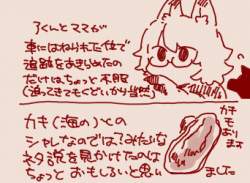 てくんとママが
車にはねられた位で
追跡をあきらめたの
だけはちょっと不服
(追ってきてもぐどいから当然)
カキ(海の)との
シャレなのでは?みたいな
ネタ説を見かけたのは
ちょっと おもしろいと思い
ました
カモ
モチ
あります